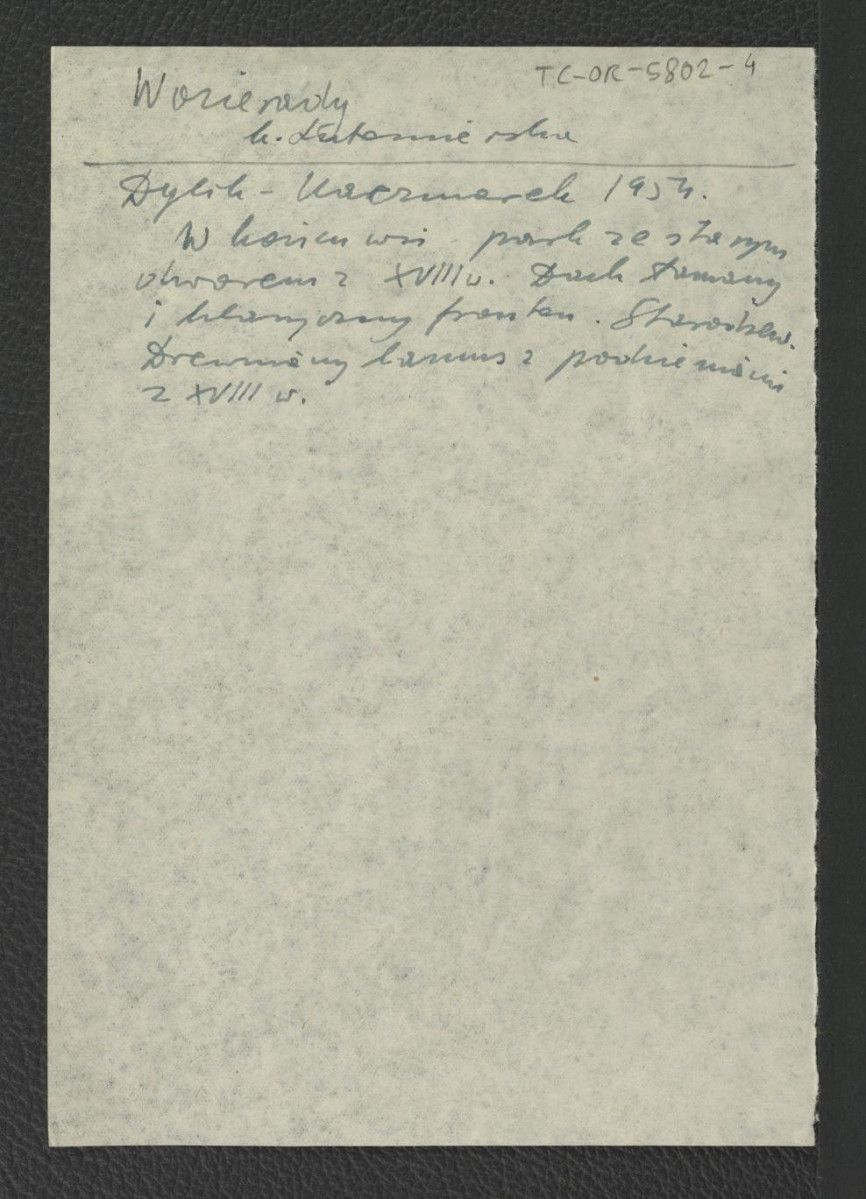 TC-OR-5802-4
Wozierady
k. Lutomierska
Dylik - Kaczmarek 1954.
W końcu wsi - park ze starym
dworem z XVIII w. Dach łamany
i klasyczny fronton. Starodrzew.
Drewniany lamus z podcieniami
z XVIII w.